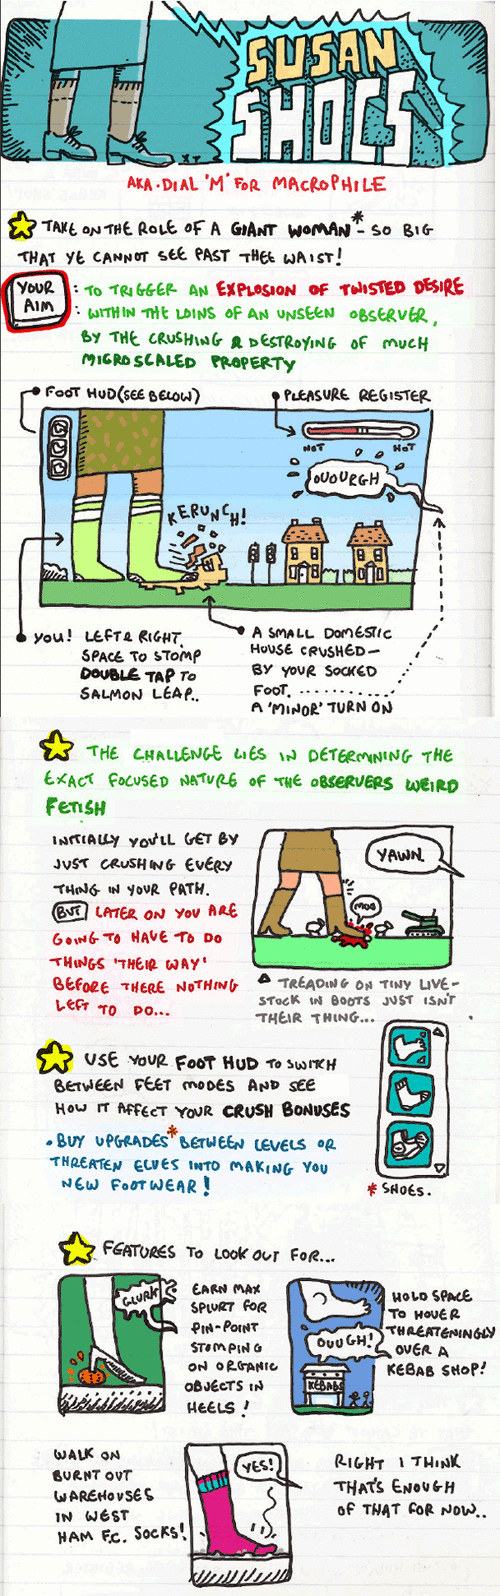 SUSAN
SHOES
AKA. DIAL 'M' FOR MACROPHILE
TAKE ON THE ROLE OF A GIANT WOMAN* - SO BIG
THAT YE CANNOT SEE PAST THEE WAIST!
YOUR
AIM
: TO TRIGGER AN EXPLOSION OF TWISTED DESIRE
: WITHIN THE LOINS OF AN UNSEEN OBSERVER,
BY THE CRUSHING & DESTROYING OF MUCH
MICROSCALED PROPERTY
FOOT HUD (SEE BELOW)
PLEASURE REGISTER
NOT
HOT
OUOURGH
KERUNCH!
YOU! LEFT & RIGHT,
SPACE TO STOMP
DOUBLE TAP TO
SALMON LEAP..
A SMALL DOMESTIC
HOUSE CRUSHED -
BY YOUR SOCKED
FOOT. ............
A 'MINOR' TURN ON
THE CHALLENGE LIES IN DETERMINING THE
EXACT FOCUSED NATURE OF THE OBSERVERS WEIRD
FETISH
INITIALLY YOU'LL GET BY
JUST CRUSHING EVERY
THING IN YOUR PATH.
BUT LATER ON YOU ARE
GOING TO HAVE TO DO
THINGS 'THEIR WAY'
BEFORE THERE NOTHING
LEFT TO DO...
YAWN.
MOO
TREADING ON TINY LIVE-
STOCK IN BOOTS JUST ISN'T
THEIR THING...
USE YOUR FOOT HUD TO SWITCH
BETWEEN FEET MODES AND SEE
HOW IT AFFECT YOUR CRUSH BONUSES
• BUY UPGRADES* BETWEEN LEVELS OR
THREATEN ELVES INTO MAKING YOU
NEW FOOTWEAR!
* SHOES.
FEATURES TO LOOK OUT FOR...
GLURK
EARN MAX
SPURT FOR
PIN-POINT
STOMPING
ON ORGANIC
OBJECTS IN
HEELS!
OUUGH!
KEBABS
HOLD SPACE
TO HOVER
THREATENINGLY
OVER A
KEBAB SHOP!
WALK ON
BURNT OUT
WAREHOUSES
IN WEST
HAM F.C. SOCKS!
YES!
RIGHT I THINK
THAT'S ENOUGH
OF THAT FOR NOW..